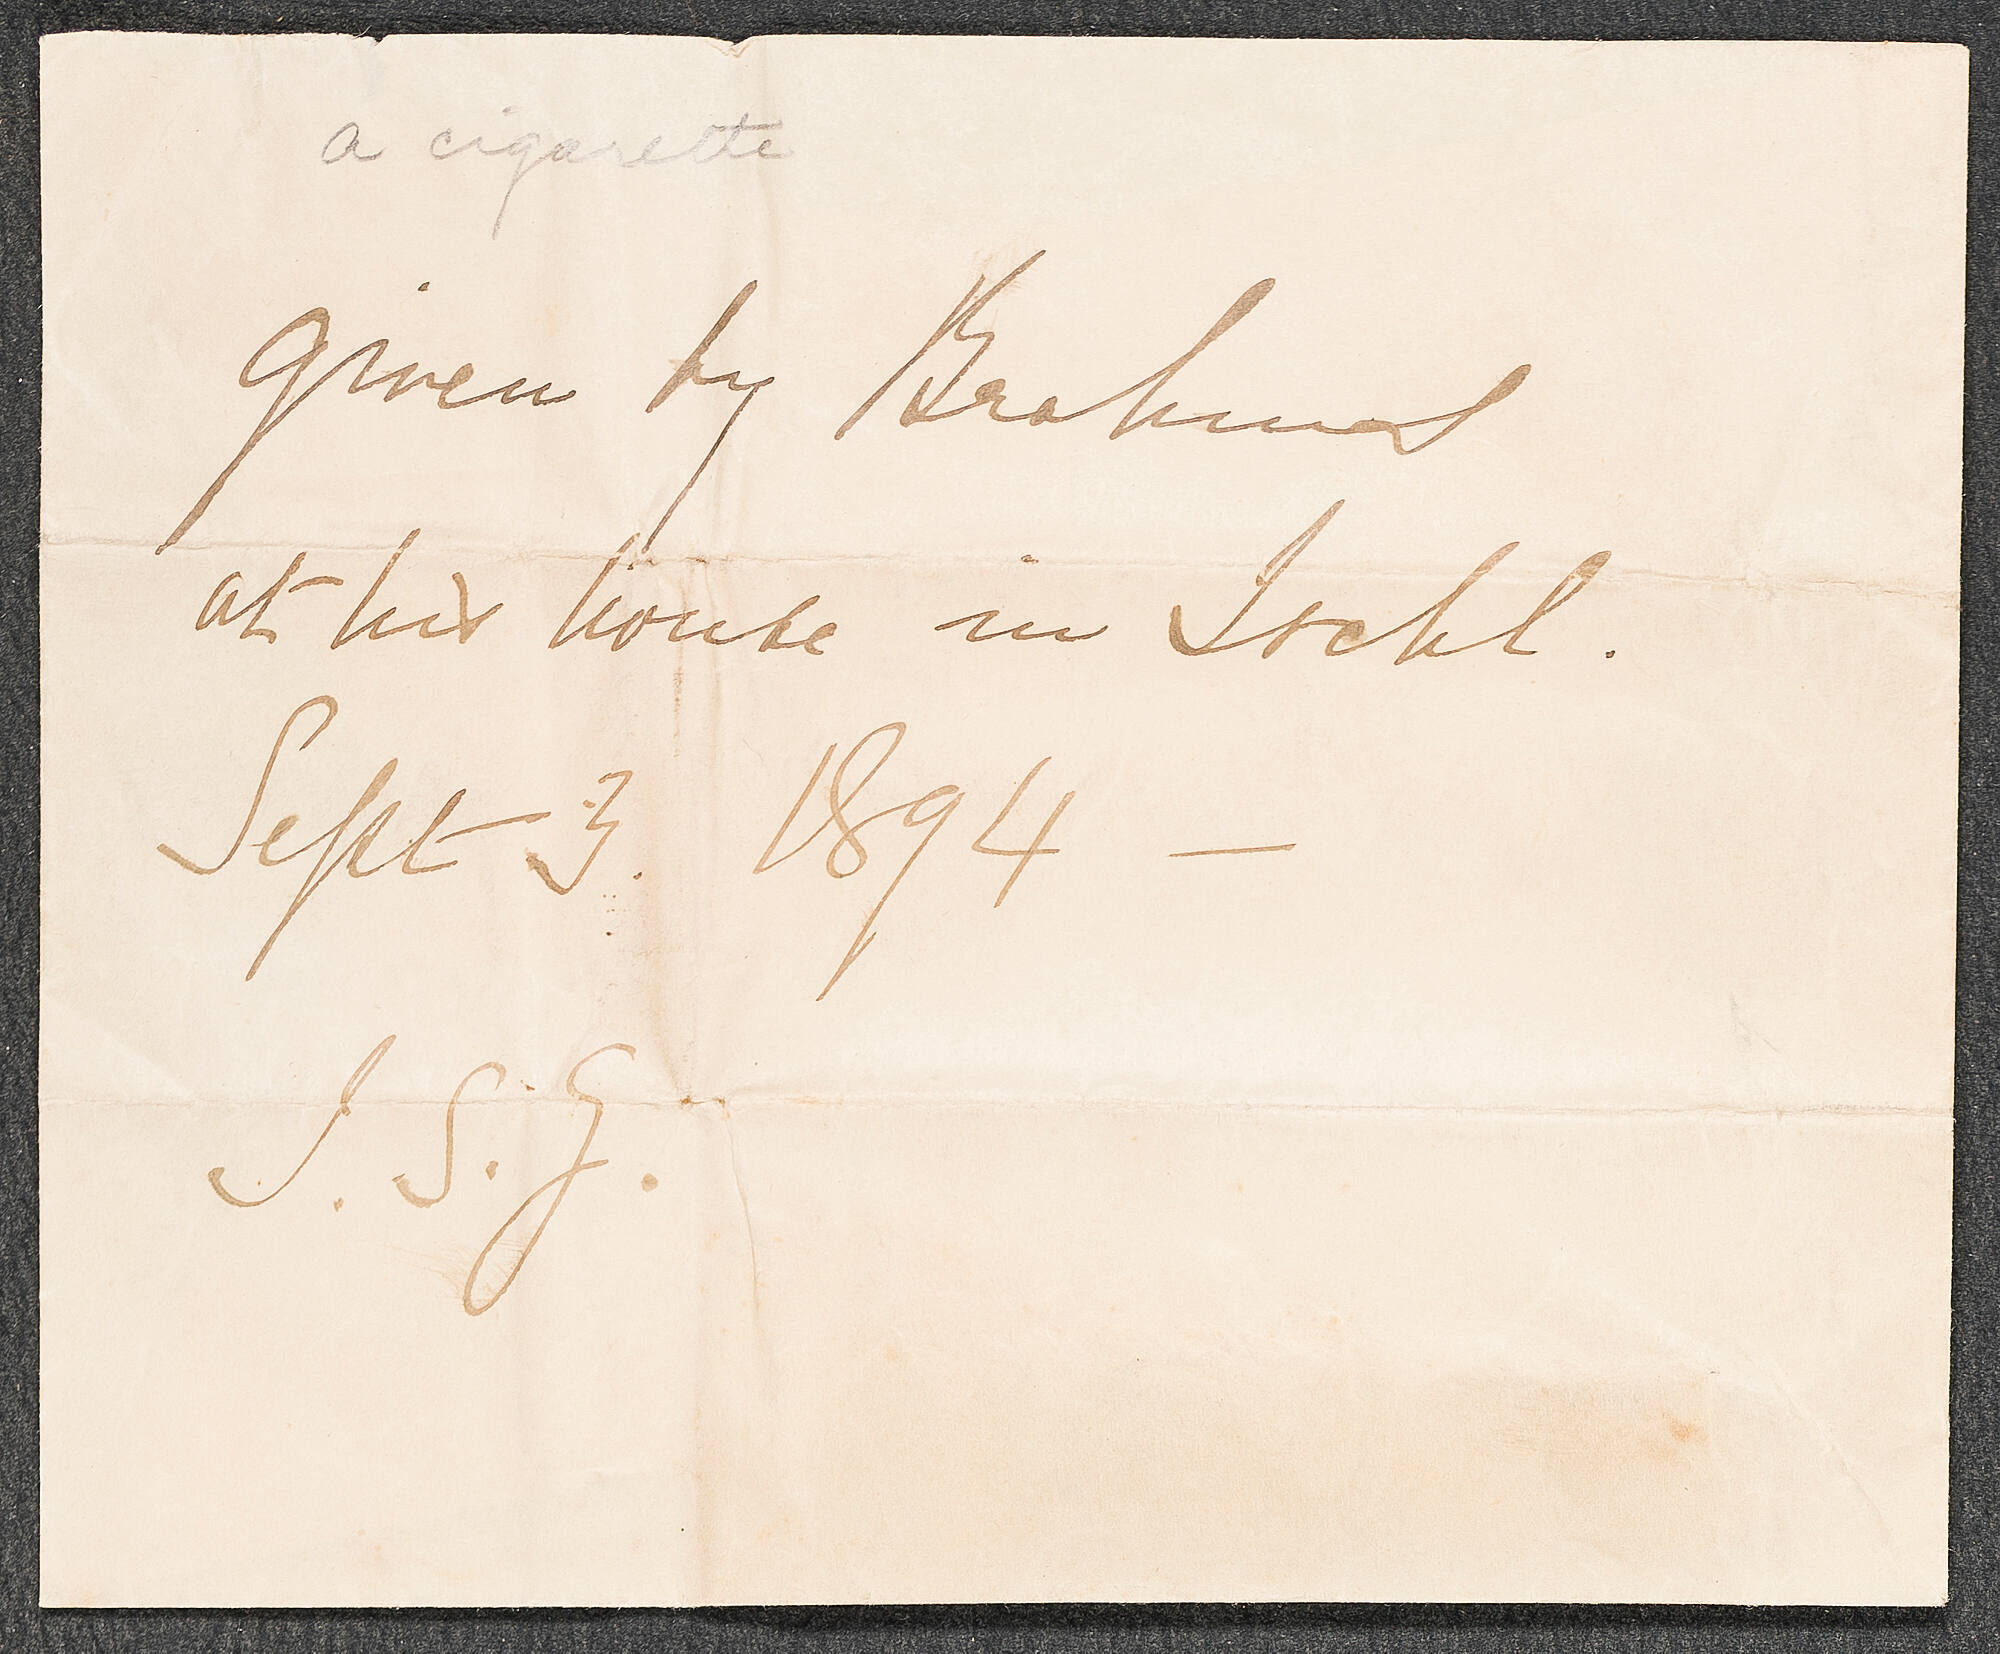 a cigarette
given by Brahms
at his house in Ischl.
Sept 3. 1894 —
I. S. G.